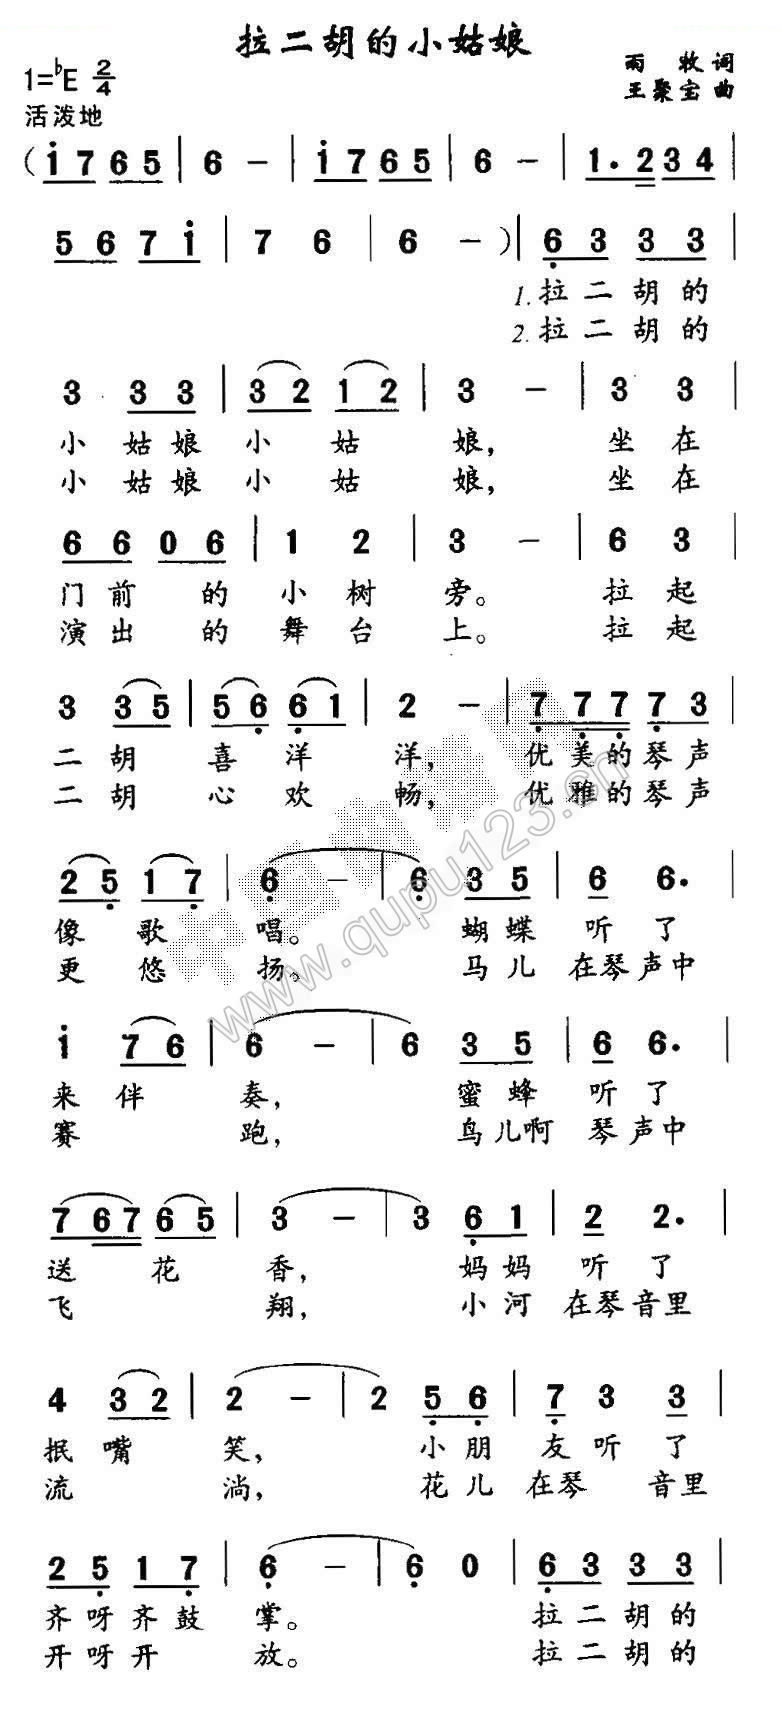 拉二胡的小姑娘
1=♭E 2/4
雨牧词
王聚宝曲
活泼地
( i 7 6 5 | 6 － | i 7 6 5 | 6 － | 1. 2 3 4 |
5 6 7 i | 7 6 | 6 － ) | 6 3 3 3 |
1.拉二胡的
2.拉二胡的
3 3 3 | 3 2 1 2 | 3 － | 3 3 |
小姑娘小姑娘，坐在
小姑娘小姑娘，坐在
6 6 0 6 | 1 2 | 3 － | 6 3 |
门前的小树旁。拉起
演出的舞台上。拉起
3 3 5 | 5 6 6 1 | 2 － | 7 7 7 7 3 |
二胡喜洋洋，优美的琴声
二胡心欢畅，优雅的琴声
2 5 1 7 | 6 － | 6 3 5 | 6 6. |
像歌唱。蝴蝶听了
更悠扬。马儿在琴声中
i 7 6 | 6 － | 6 3 5 | 6 6. |
来伴奏，蜜蜂听了
赛跑，鸟儿啊琴声中
7 6 7 6 5 | 3 － | 3 6 1 | 2 2. |
送花香，妈妈听了
飞翔，小河在琴音里
4 3 2 | 2 － | 2 5 6 | 7 3 3 |
抿嘴笑，小朋友听了
流淌，花儿在琴音里
2 5 1 7 | 6 － | 6 0 | 6 3 3 3 |
齐呀齐鼓掌。拉二胡的
开呀开放。拉二胡的
www.qupu123.cn